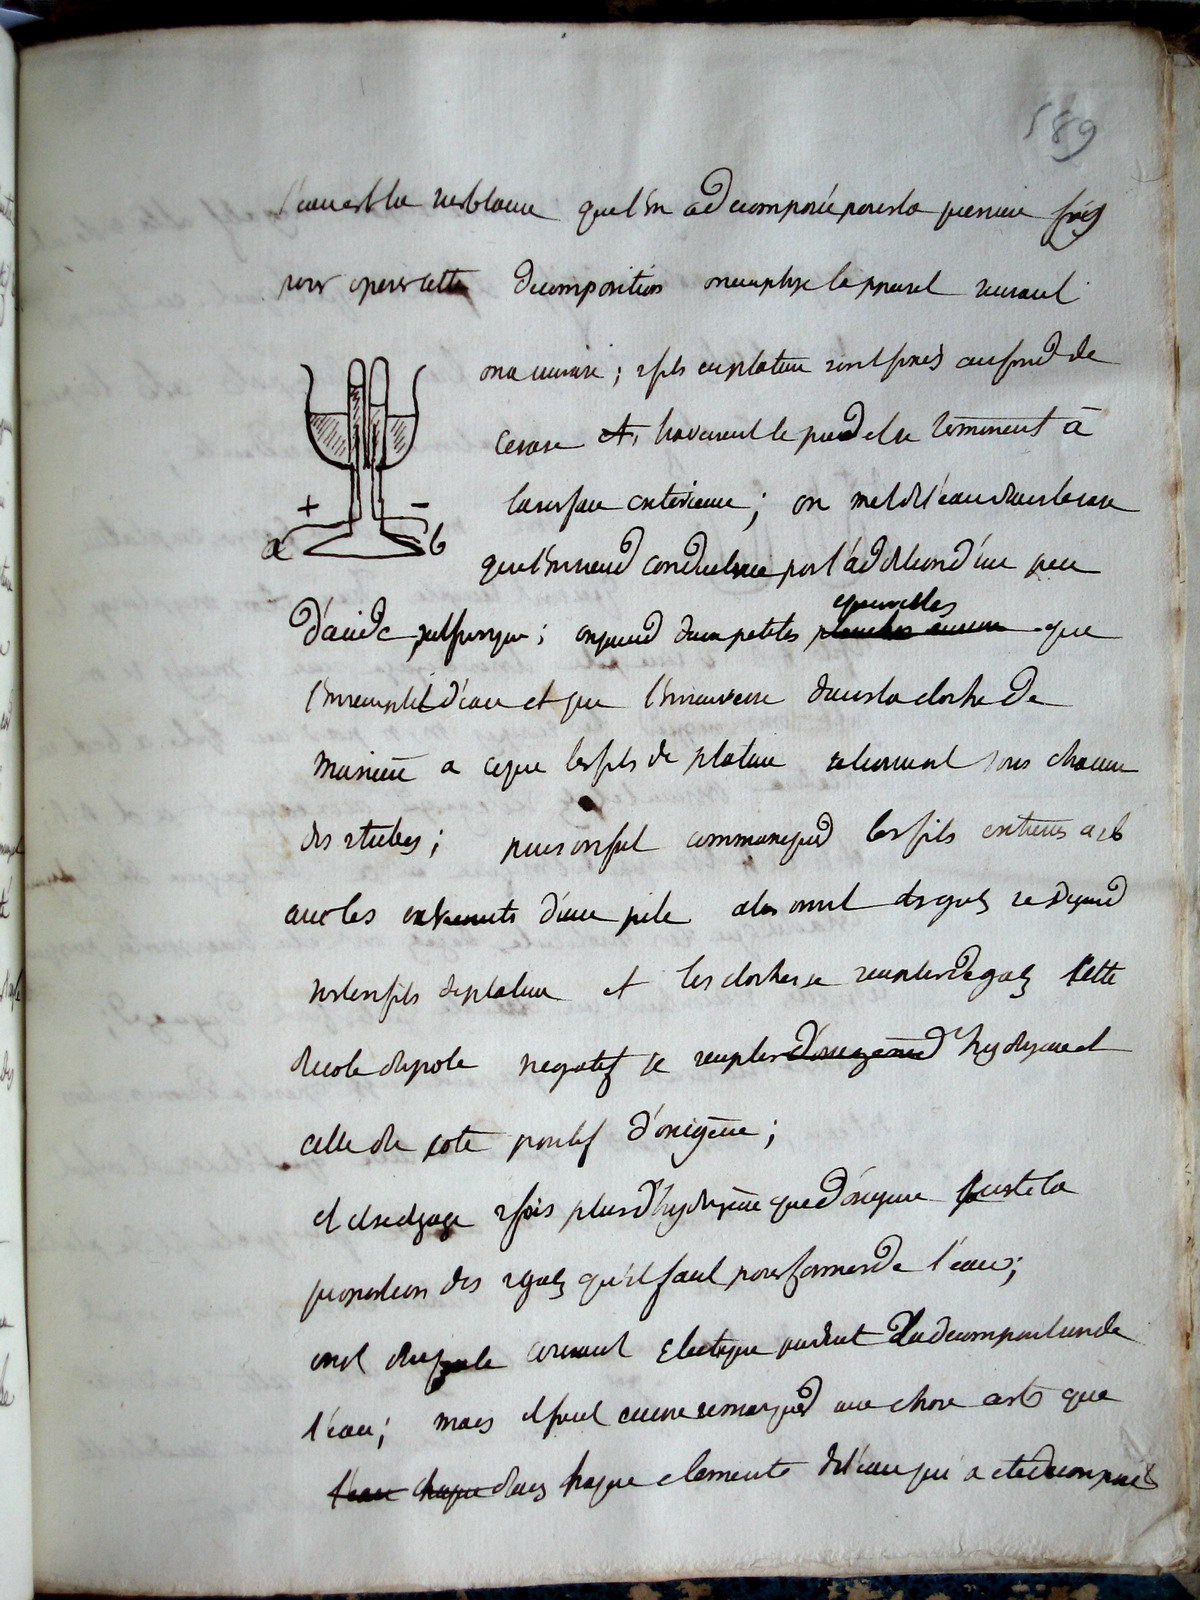 589
l'eau est la substance que l'on a decomposée pour la premiere fois
pour operer cette decomposition on emploie l'appareil suivant
on a un vase ; 2 fils en platine sont fixés au fond de
ce vase et, traversent le pied et se terminent à
la surface exterieure ; on met de l'eau dans le vase
que l'on rend conductrice par l'addition d'un peu
eprouvettes
d'acide sulfurique ; on prend deux petites que
l'on remplit d'eau et que l'on renverse dans la cloche de
maniere a ce que les fils de platine se trouvent sous chacun
des 2 tubes ; puis on fait communiquer les fils a et b
+ −
a b
avec les extremités d'une pile alors on voit des gaz se degager
sur les fils de platine et les cloches se remplir de gaz Cette
du cote du pole negatif se remplir d'oxigene d'hydrogene et
celle du cote positif d'oxigène ;
et il se degage 2 fois plus d'hydrogène que d'oxigene juste la
proportion des 2 gaz qu'il faut pour former de l'eau ;
on voit que le courant electrique produit la decomposition de
l'eau ; mais il faut encore remarquer une chose c'est que
l'eau chaque dans chaque elements de l'eau qui a ete decomposés